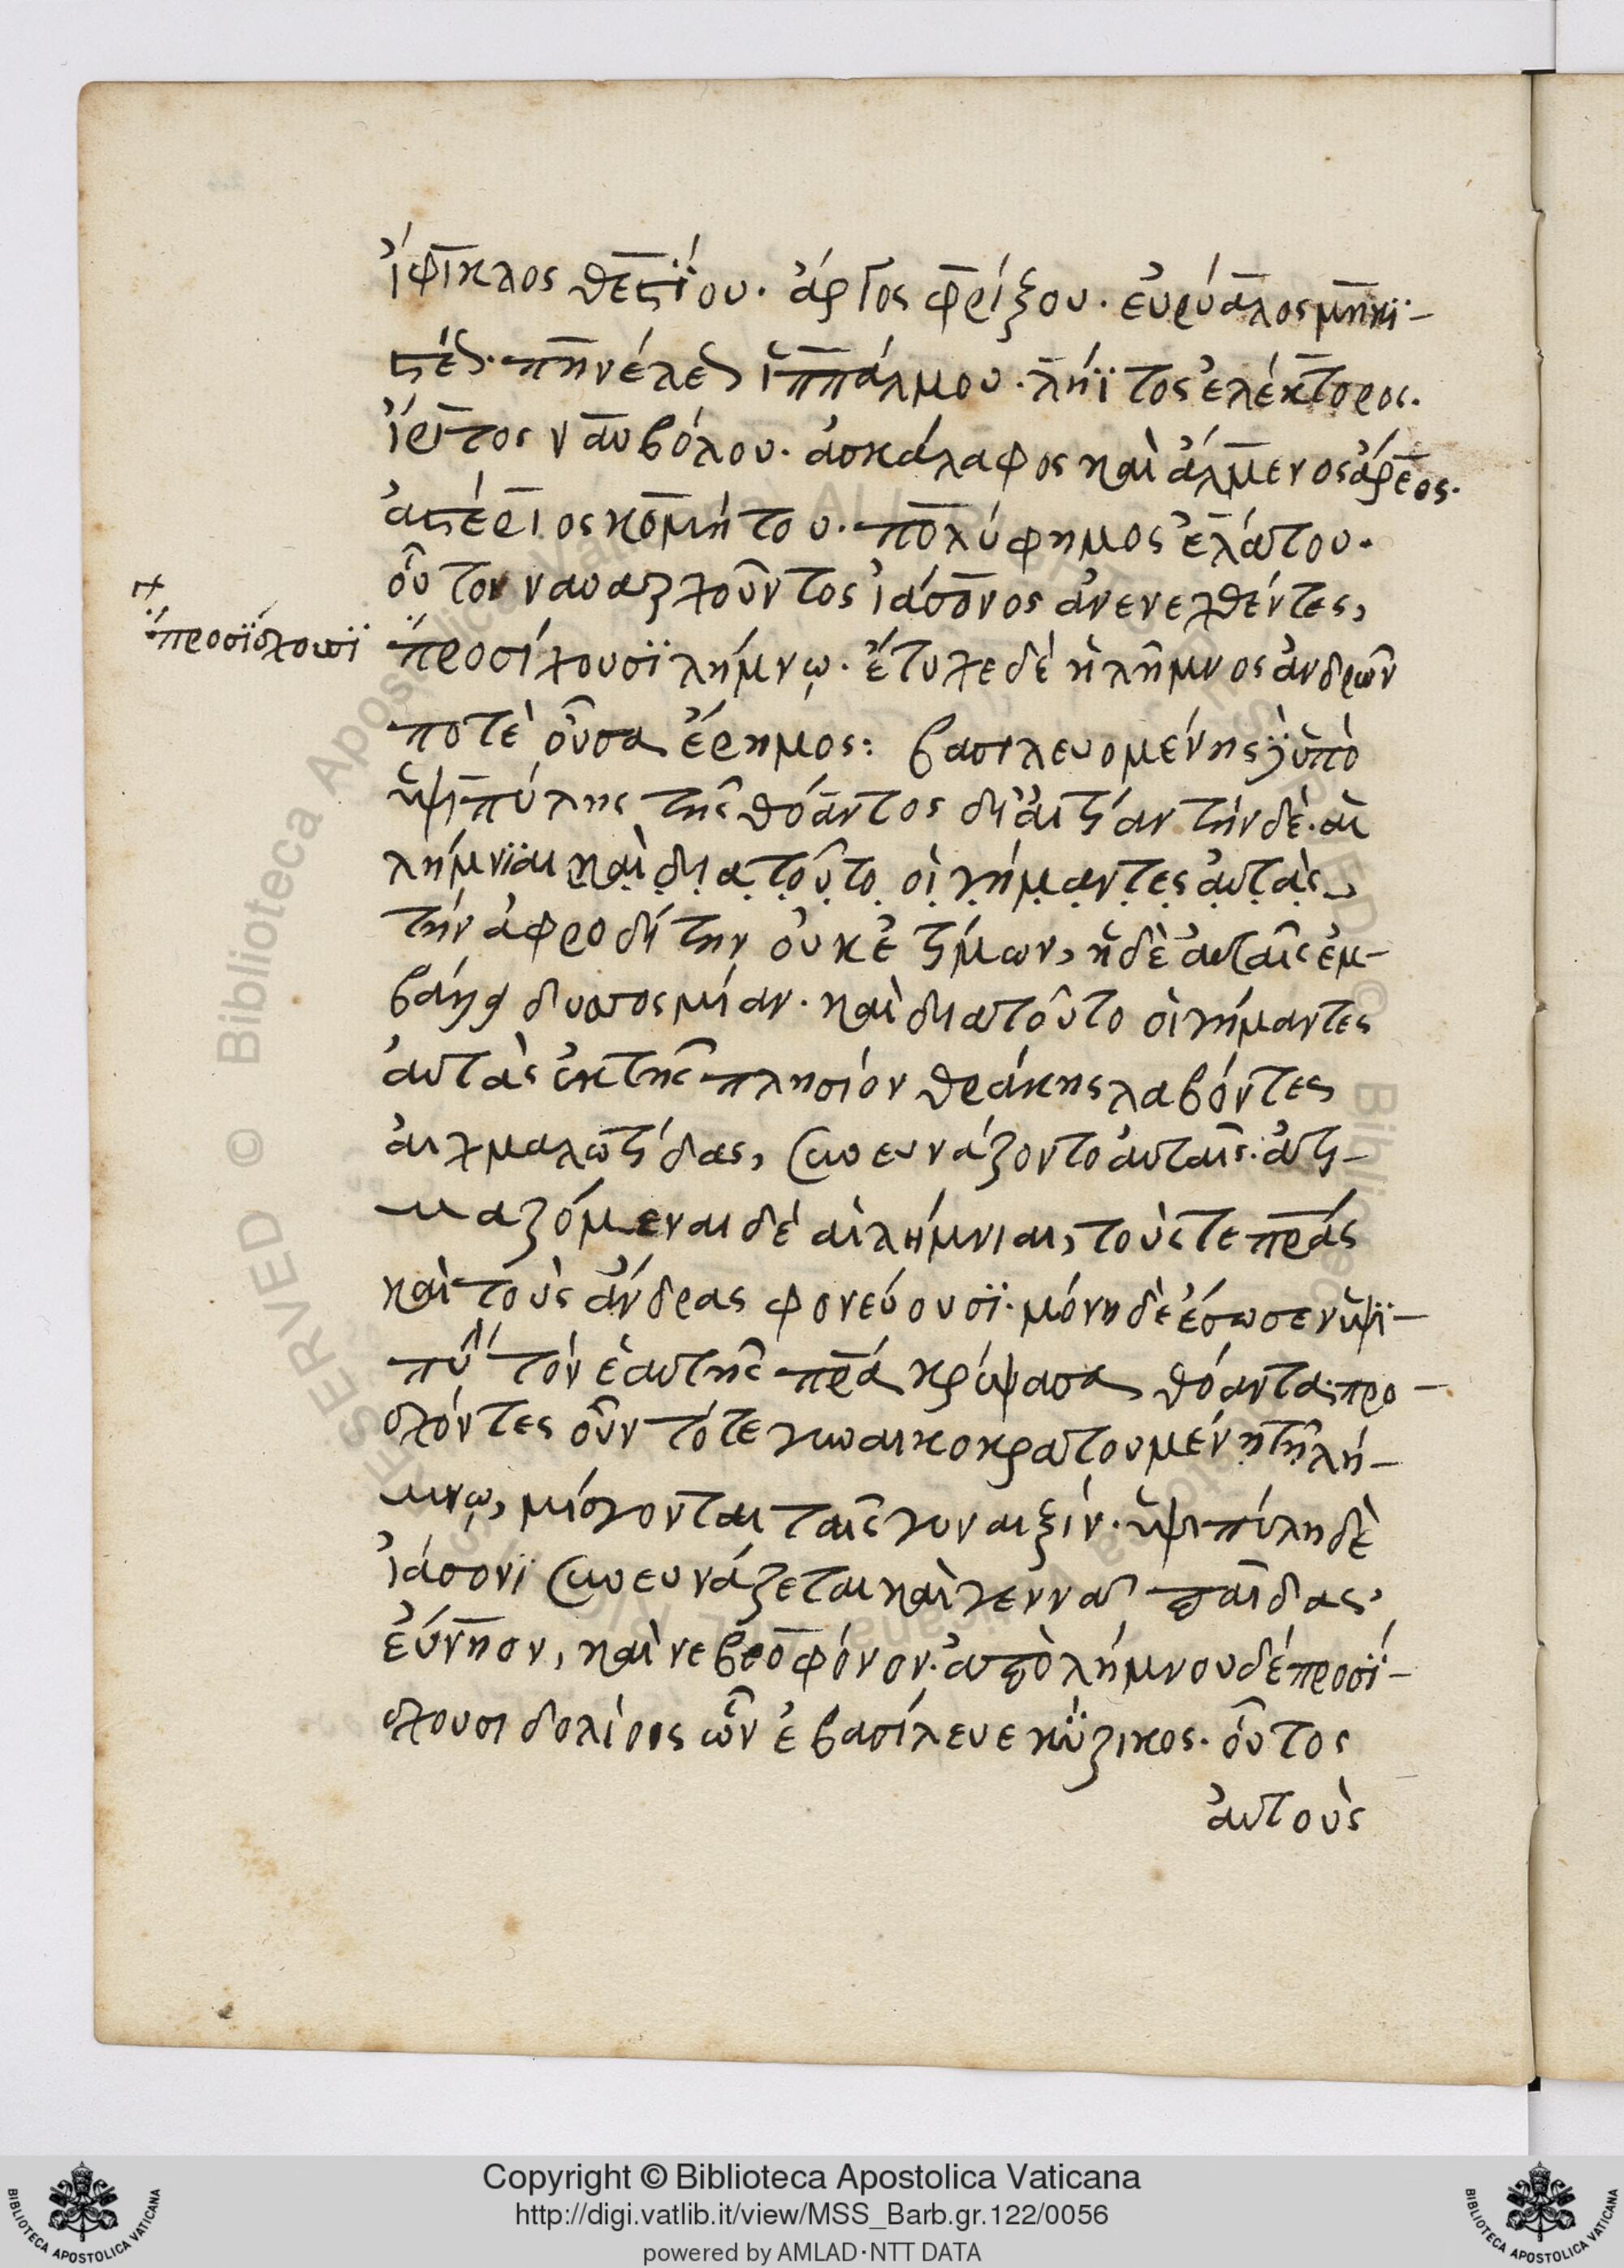 ἴφικλος θεστίου. ἄργος φρίξου. εὐρύαλος μηκι-
στέως. πηνέλεως ἱππάλμου. λήϊτος ἀλέκτορος.
ἴφιτος ναυβόλου. ἀσκάλαφος καὶ ἄλμενος ἄρεος.
ἀστέριος κομήτου. πολύφημος ἐλάτου.
οὗτοι ναυαρχοῦντος ἰάσονος ἀνενεχθέντες,
προσίσχουσϊ
προσίχουσϊ λήμνῳ. ἔτυχε δὲ ἡ λῆμνος ἀνδρῶν
ποτὲ οὖσα ἔρημος: βασιλευομένης ὑπὸ
ὑψιπύλης τῆς θόαντος δι' αἰτίαν τήνδε. αἱ
λήμνϊαι καὶ διατοῦτο οἱ γήμαντες αὐτὰς
τὴν ἀφροδίτην οὐκ ἐτίμων, ἡ δὲ αὐταῖς ἐμ-
βάλλει δυσοσμίαν. καὶ διατοῦτο οἱ γήμαντες
αὐτὰς ἐκ τῆς πλησίον θράκης λαβόντες
αἰχμαλωτίδας, συνευνάζοντο αὐταῖς. ἀτι-
μαζόμεναι δὲ αἱ λήμνιαι, τούς τε πρᾱς
καὶ τοὺς ἄνδρας φονεύουσϊ. μόνη δὲ ἔσωσεν ὑψϊ-
πύλη τὸν ἑαυτῆς πρᾱ κρύψασα θόαντα. προ-
σχόντες οὖν τότε γυναικοκρατουμένῃ τῇ λή-
μνῳ, μίσγονται ταῖς γυναιξίν. ὑψιπύλη δὲ
ἰάσονϊ συνευνάζεται καὶ γεννᾷ παῖδας,
εὔνησν, καὶ νεβροφόνον. ἀπὸ λήμνου δὲ προσί-
σχουσι δολίοις ὧν ἐβασίλευε κύζικος. οὗτος
αὐτοὺς
Copyright © Biblioteca Apostolica Vaticana
http://digi.vatlib.it/view/MSS_Barb.gr.122/0056
powered by AMLAD·NTT DATA
BIBLIOTECA APOSTOLICA VATICANA
BIBLIOTECA APOSTOLICA VATICANA